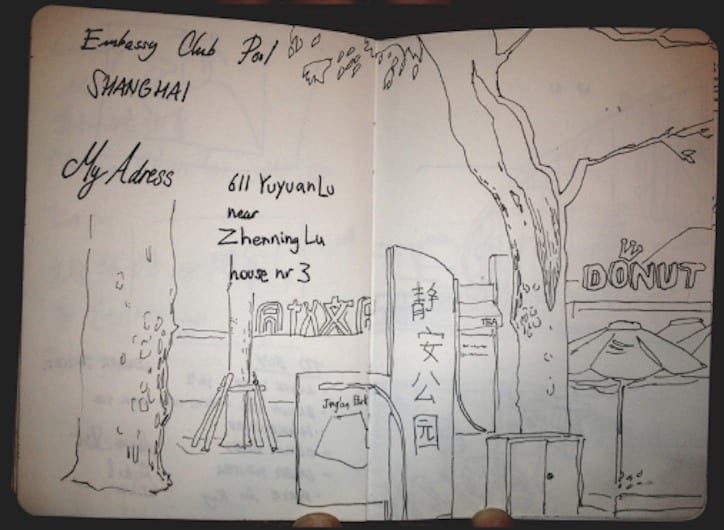 Embassy Club Pool
SHANGHAI
My Adress
611 YuyuanLu
near
Zhenning Lu
house nr 3
静安公园
DONUT
TEA
Jing'an Park